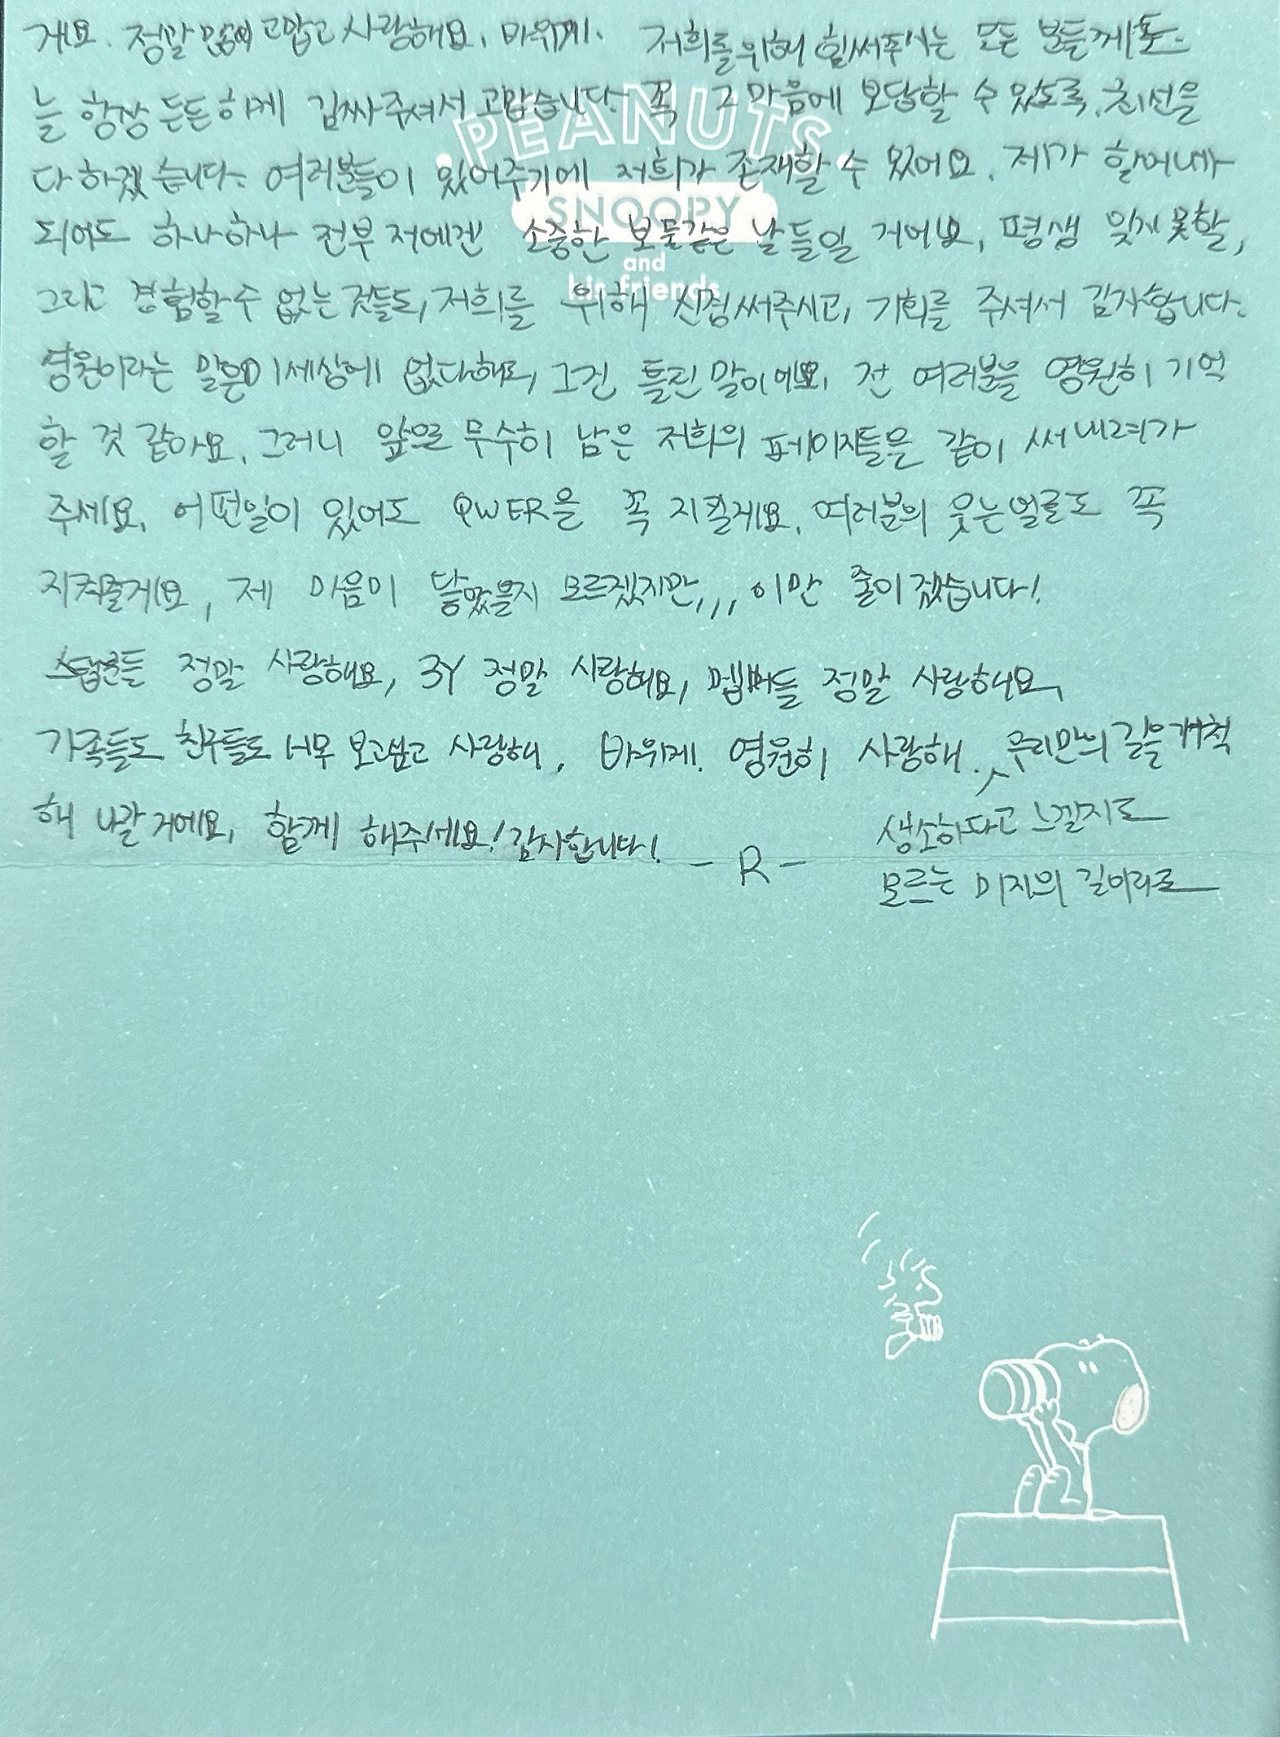 게요. 정말 많이 고맙고 사랑해요, 바위게. 저희를위해 힘써주시는 모든 분들께도
늘 항상 든든하게 감싸주셔서 고맙습니다. 꼭 그 마음에 보답할 수 있도록, 최선을
다하겠습니다. 여러분들이 있어주기에 저희가 존재할 수 있어요. 제가 할머니가
되어도 하나하나 전부 저에겐 소중한 보물같은 날들일 거에요, 평생 잊지 못할,
그리고 경험할 수 없는 것들도, 저희를 위해 신경써주시고, 기회를 주셔서 감사합니다.
영원이라는 말은 이세상에 없다해도, 그건 틀린 말이에요, 전 여러분을 영원히 기억
할 것 같아요. 그러니 앞으로 무수히 남은 저희의 페이지들을 같이 써내려가
주세요. 어떤일이 있어도 QWER을 꼭 지킬게요. 여러분의 웃는얼굴도 꼭
지켜줄게요, 제 마음이 닿았을지 모르겠지만,,, 이만 줄이겠습니다!
스탭분들 정말 사랑해요, 3Y 정말 사랑해요, 멤버들 정말 사랑해요,
가족들도 친구들도 너무 보고싶고 사랑해. 바위게. 영원히 사랑해. 우리만의 길을 개척
해 나갈거에요, 함께 해주세요! 감사합니다! - R -
생소하다고 느낄지도
모르는 미지의 길이라도
PEANUTS
SNOOPY
and
his friends